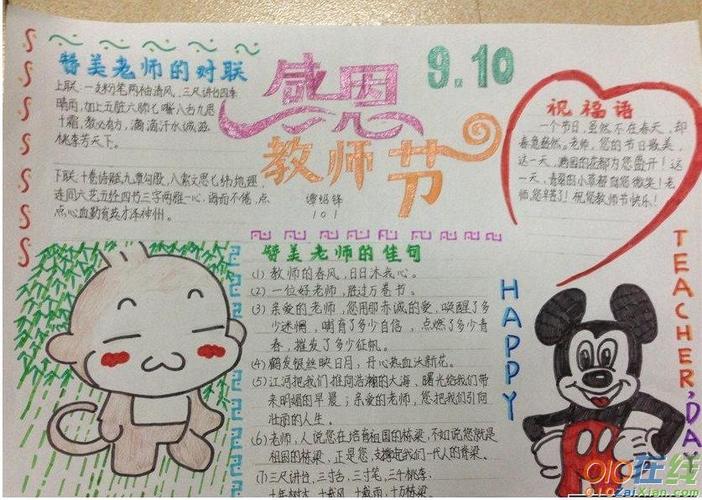 赞美老师的对联
上联:一支粉笔两袖清风,三尺讲台四季
晴雨,加上五脏六腑七嘴八舌九思
十霜,教必有方,滴滴汗水诚滋
桃李芳天下。
下联:十卷诗赋九章勾股,八索文思七纬地理,
连同六艺五经四书三字两雅一心,诲而不倦,点
点心血勤育英才泽神州。
感恩
教师节
101
9.10
祝福语
一个节日,虽然不在春天,却
春意盎然。老师,您的节日最美,
这一天,满园的花都为您盛开!这
一天,青翠的小草都向您微笑!老
师,您辛苦了!祝您教师节快乐!
赞美老师的佳句
(1)教师的春风,日日沐我心。
(2)一位好老师,胜过万卷书。
(3)亲爱的老师,您用那赤诚的爱,唤醒了多
少迷惘,哺育了多少自信,点燃了多少青
春,摧发了多少征帆。
(4)鹤发银丝映日月,丹心热血沃新花。
(5)江河把我们推向浩瀚的大海,曙光给我们带
来明媚的早晨;亲爱的老师,您把我们引向
壮丽的人生。
(6)老师,人说您在培育祖国的栋梁,不如说您就是
祖国的栋梁,正是您支撑起我们一代人的脊梁。
(7)三尺讲台,三寸舌,三寸笔,三千桃李
十年树木,十载风,十载雨,十万栋梁
HAPPY
TEACHER'DAY
010在线
010ZaiXian.com